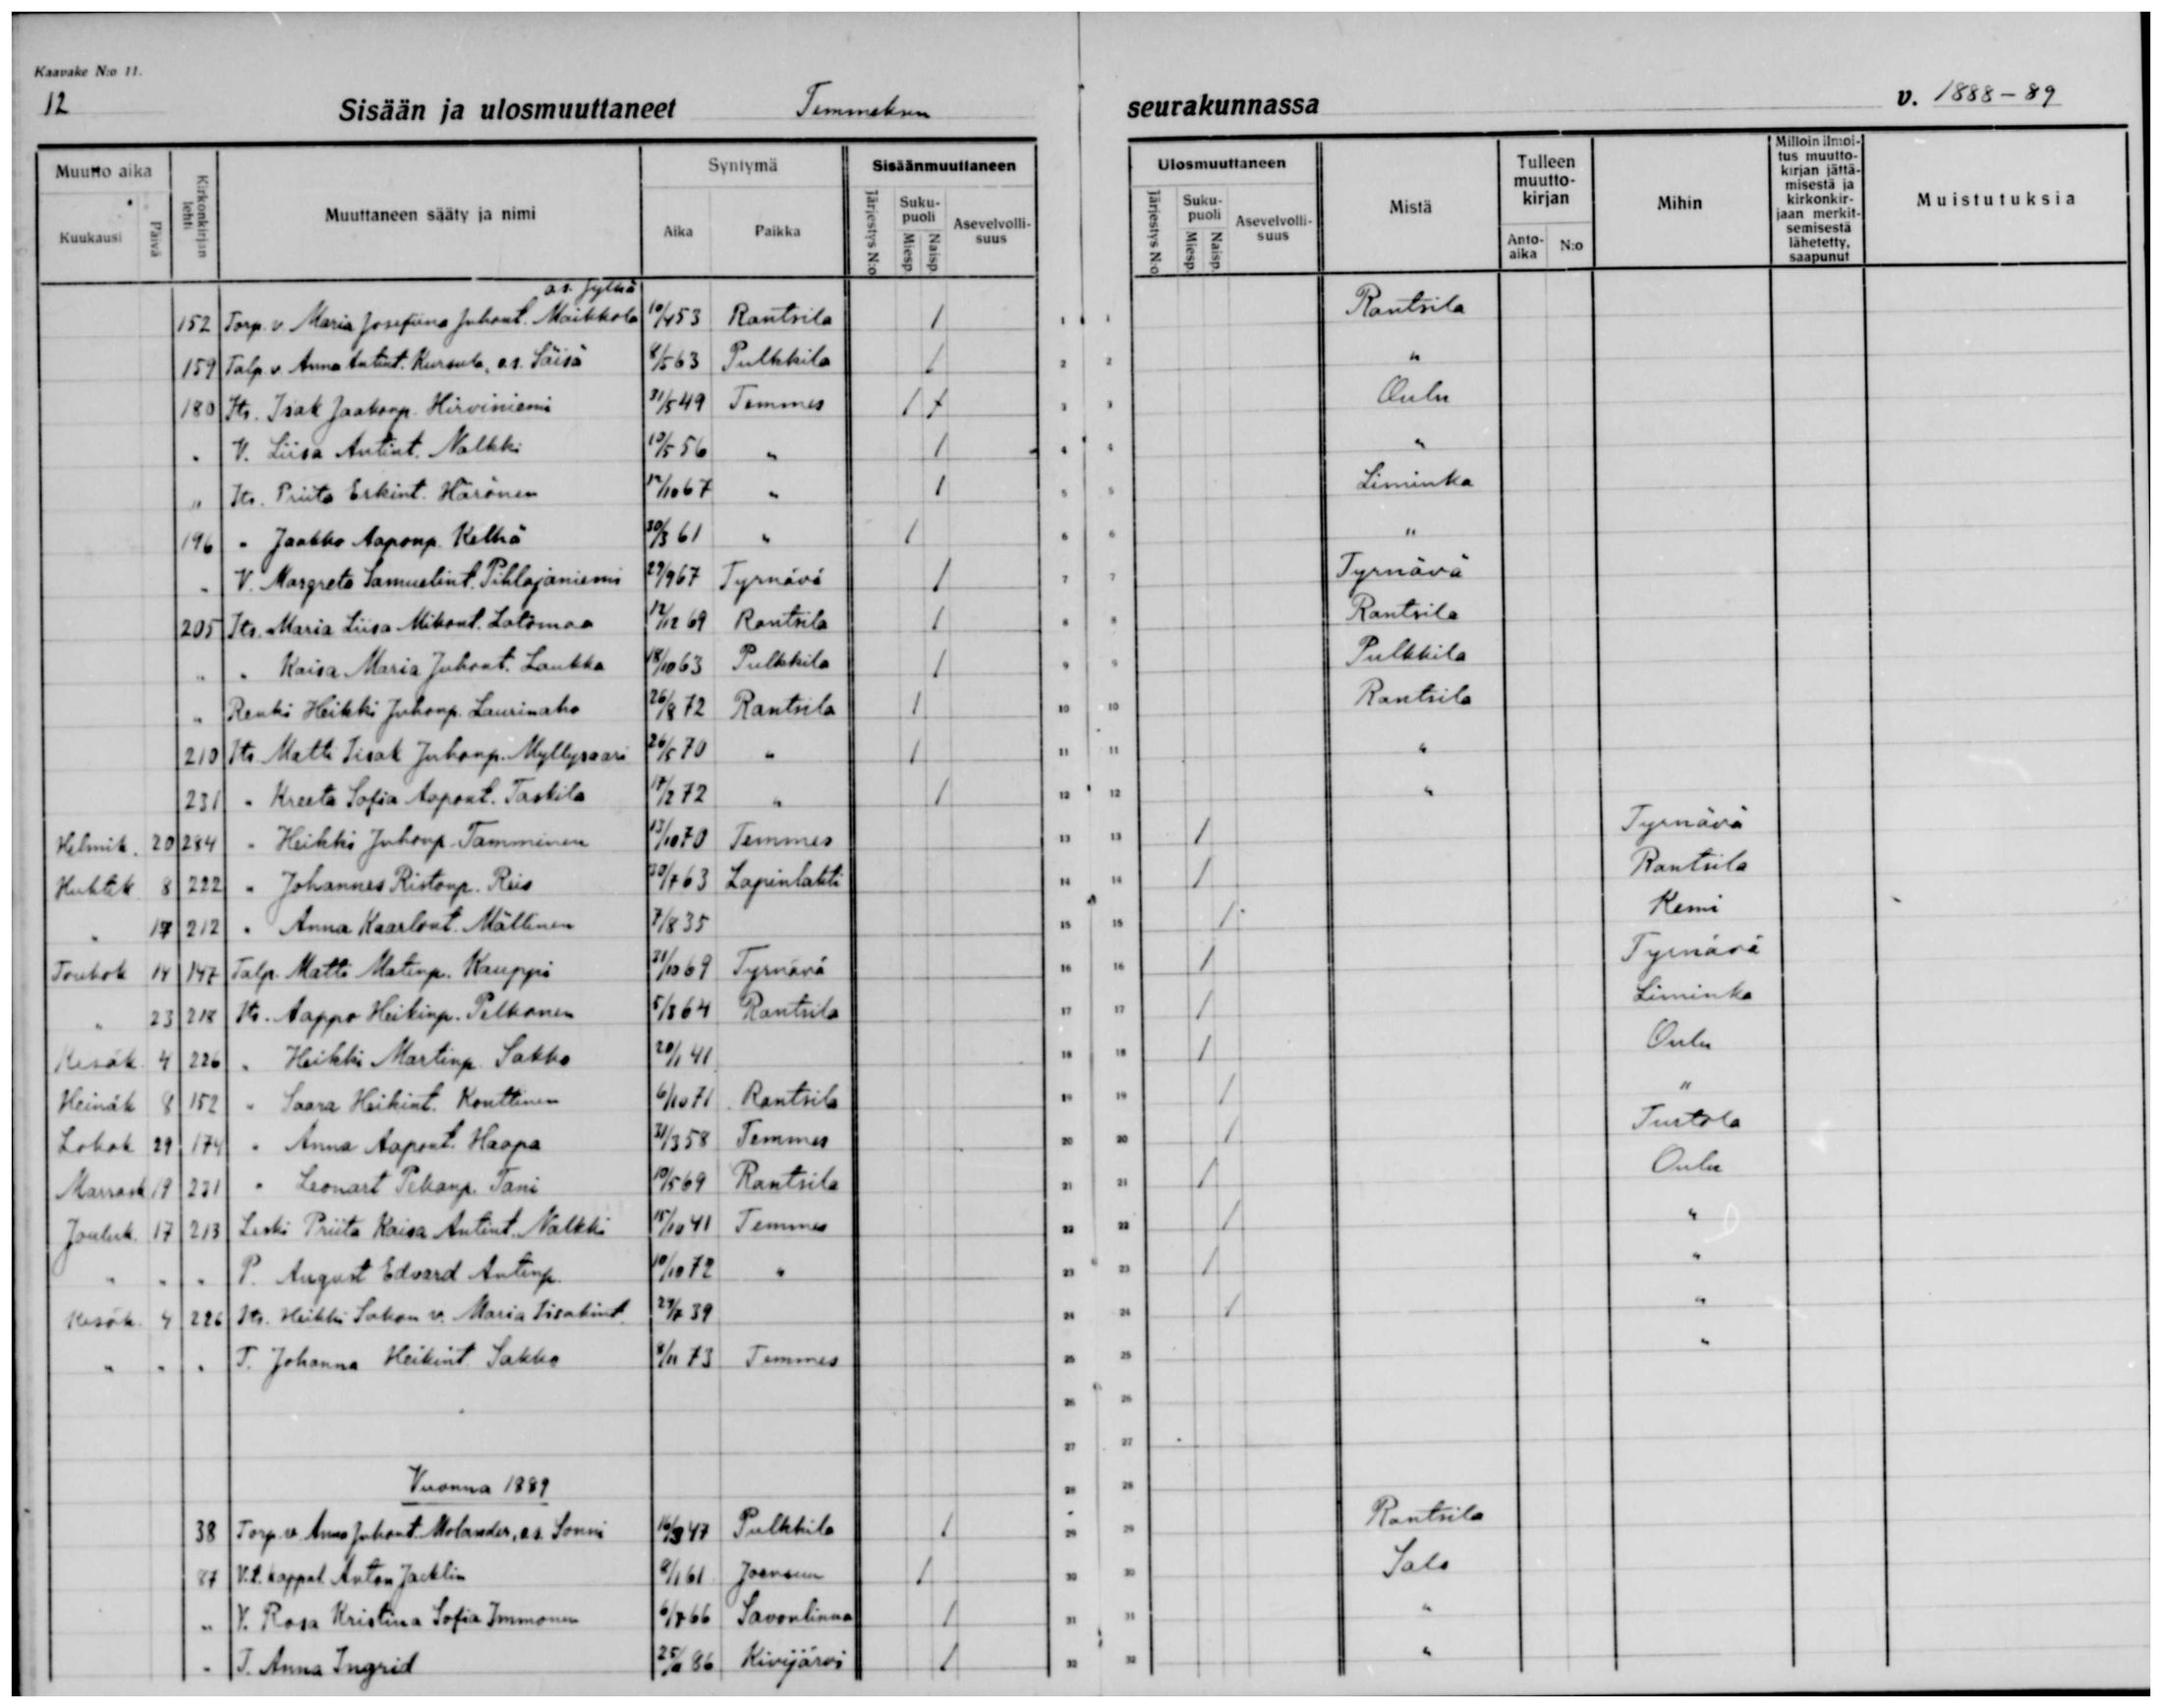 Kaavake N:o 11.
12 Sisään ja ulosmuuttaneet Temmeksen seurakunnassa v. 1888-89
Muutto aika Kuukausi Päivä Kirkonkirjan lehti Muuttaneen sääty ja nimi Syntymä Aika Paikka Sisäänmuuttaneen Järjestys N:o Sukupuoli Miesp. Naisp. Asevelvolli-suus Ulosmuuttaneen Järjestys N:o Suku-puoli Miesp. Naisp. Asevelvolli-suus Mistä Tulleen muutto-kirjan Anto-aika N:o Mihin Milloin ilmoi-tus muutto-kirjan jättä-misestä ja kirkonkir-jaan merkit-semisestä lähetetty, saapunut Muistutuksia
o.s. Jylhä
152 Torp. v. Maria Josefiina Juhont. Maikkola 10/4 53 Rantsila / 1 1 Rantsila
159 Talp. v. Anna Antint. Kursula, o.s. Säisä 8/5 63 Pulkkila / 2 2 "
180 Its. Isak Jaakonp. Hirviniemi 31/5 49 Temmes / 3 3 Oulu
" V. Liisa Antint. Nalkki 10/5 56 " / 4 4 "
" Its. Priita Erkint. Härönen 12/10 67 " / 5 5 Liminka
196 " Jaakko Aaponp. Kelhä 30/3 61 " / 6 6 "
" V. Margreta Samuelint. Pihlajaniemi 29/9 67 Tyrnävä / 7 7 Tyrnävä
205 Its. Maria Liisa Mikont. Latomaa 12/12 69 Rantsila / 8 8 Rantsila
" " Kaisa Maria Juhont. Laukka 18/10 63 Pulkkila / 9 9 Pulkkila
" Renki Heikki Juhonp. Laurinaho 26/8 72 Rantsila / 10 10 Rantsila
210 Its. Matti Iisak Juhonp. Myllysaari 26/5 70 " / 11 11 "
231 " Kreeta Sofia Aapont. Taskila 17/2 72 " / 12 12 "
Helmik. 20 284 " Heikki Juhonp. Tamminen 13/10 70 Temmes 13 13 / Tyrnävä
Huhtik 8 222 " Johannes Ristonp. Reis 30/7 63 Lapinlahti 14 14 / Rantsila
" 17 212 " Anna Kaarlont. Mällinen 7/8 35 15 15 / Kemi
Toukok 14 147 Talp. Matti Matinp. Kauppi 31/10 69 Tyrnävä 16 16 / Tyrnävä
" 23 218 Its. Aappo Heikinp. Pelkonen 5/3 64 Rantsila 17 17 / Liminka
Kesäk. 4 226 " Heikki Martinp. Sakko 20/1 41 18 18 / Oulu
Heinäk 8 152 " Saara Heikint. Konttinen 6/10 71 Rantsila 19 19 / "
Lokak 29 174 " Anna Aapont. Haapa 31/3 58 Temmes 20 20 / Turtola
Marrask 19 231 " Leonart Pekanp. Tani 10/5 69 Rantsila 21 21 / Oulu
Jouluk. 17 213 Leski Priita Kaisa Antint. Nalkki 15/10 41 Temmes 22 22 / "
" " " P. August Edvard Antinp. 10/10 72 " 23 23 / "
Kesäk. 4 226 Its. Heikki Sakon v. Maria Iisakint. 29/7 39 24 24 / "
" " " T. Johanna Heikint Sakko 8/11 73 Temmes 25 25 "
26 26
27 27
Vuonna 1889 28 28
38 Torp. v. Anna Juhont. Molander, o.s. Sonni 16/3 47 Pulkkila / 29 29 Rantsila
87 V.t. kappal. Anton Jacklin 8/1 61 Joensuu / 30 30 Salo
" V. Rosa Kristina Sofia Immonen 6/7 66 Savonlinna / 31 31 "
" T. Anna Ingrid 86 Kivijärvi / 32 32 "